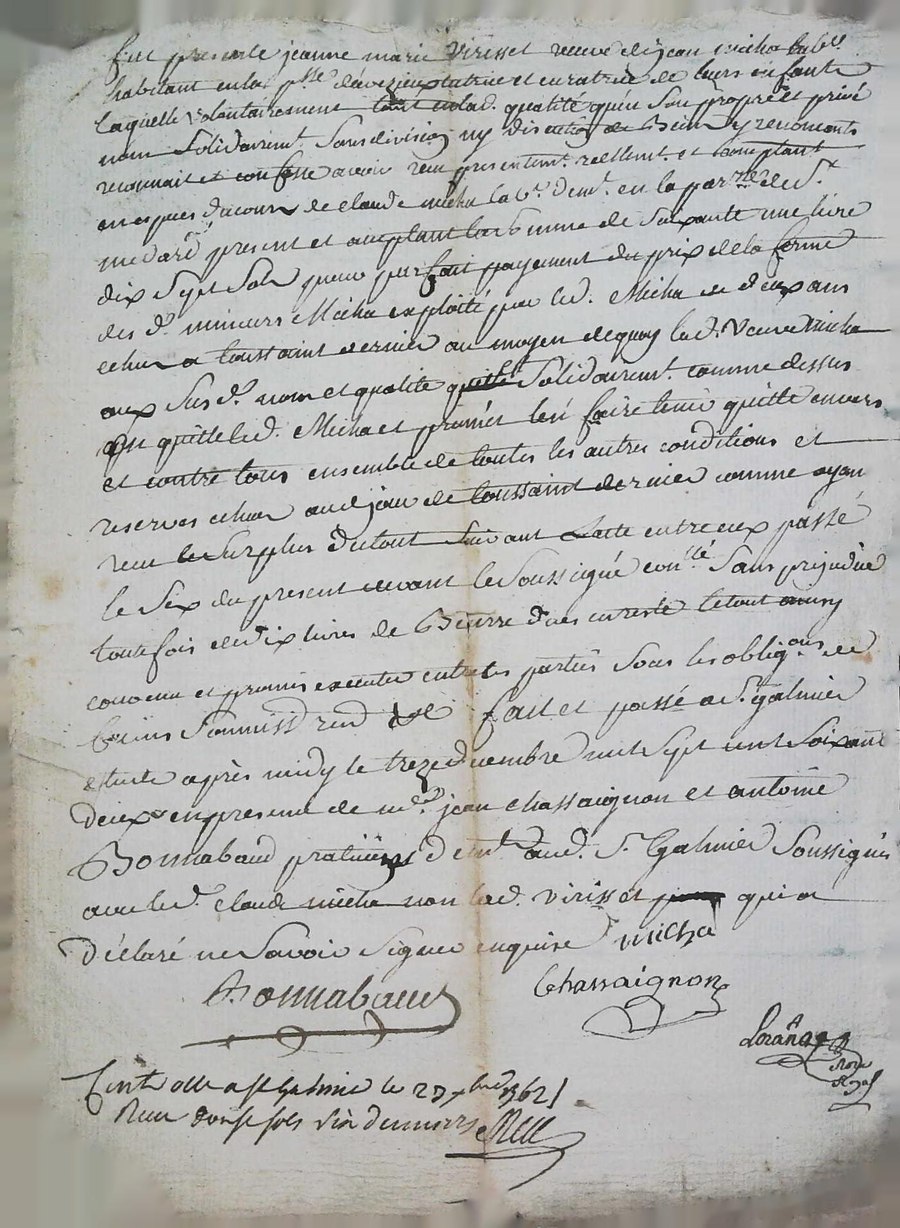 fut presente jeanne marie virisset veuve de jean micha lab.r
habitant en la p.sse de veziein tutrice et curatrice de leurs enfants
laquelle volontairement tant en lad. qualité qu'en son propre et privé
nom solidairem.t sans division ny discution de Biens y renoncants
reconnait et confesse avoir receu presentem.t reellem.t et comptant
en especes du cours de claude micha lab.r dem.t en la par.sse de S.t
medard present et acceptant la somme de soixante une livre
dix sept sols pour parfait payement du prix de la ferme
des d. mineurs Micha exploité par led. Micha de deux ans
echeu a toussaint dernier au moyen de quoy lad. veuve micha
aux susd. nom et qualité quitte solidairem.t comme dessus
quitte led. Micha et promet len faire tenir quitte envers
et contre tous ensemble de toutes les autres conditions et
reserves echeu aud. jour de toussaint dernier comme ayan
receu le surplus du tout suivant Lacte entre eux passé
le six du present devant le soussigné con.lé sans prejudice
toutefois de dix livres de Beurre dues en reste le tout ainsy
convenu et promis executer entre les parties sous les oblig.ons de
Biens soumiss.d ren.d &c fait et passé a S.t galmier
etude après midy le treze decembre mil sept cent soixante
deux en presence de m.e jean chassaignon et antoine
Bonnabaud praticiens dem.t aud. S.t Galmier soussignés
avec led. claude micha non lad. virisset qui a
déclaré ne savoir signer enquise micha
Bonnabaud
Chassaignon
Loranço
Nore
Royal
Controlle a st Galmier le 23 xbre 1762
Receu douze sols six deniers